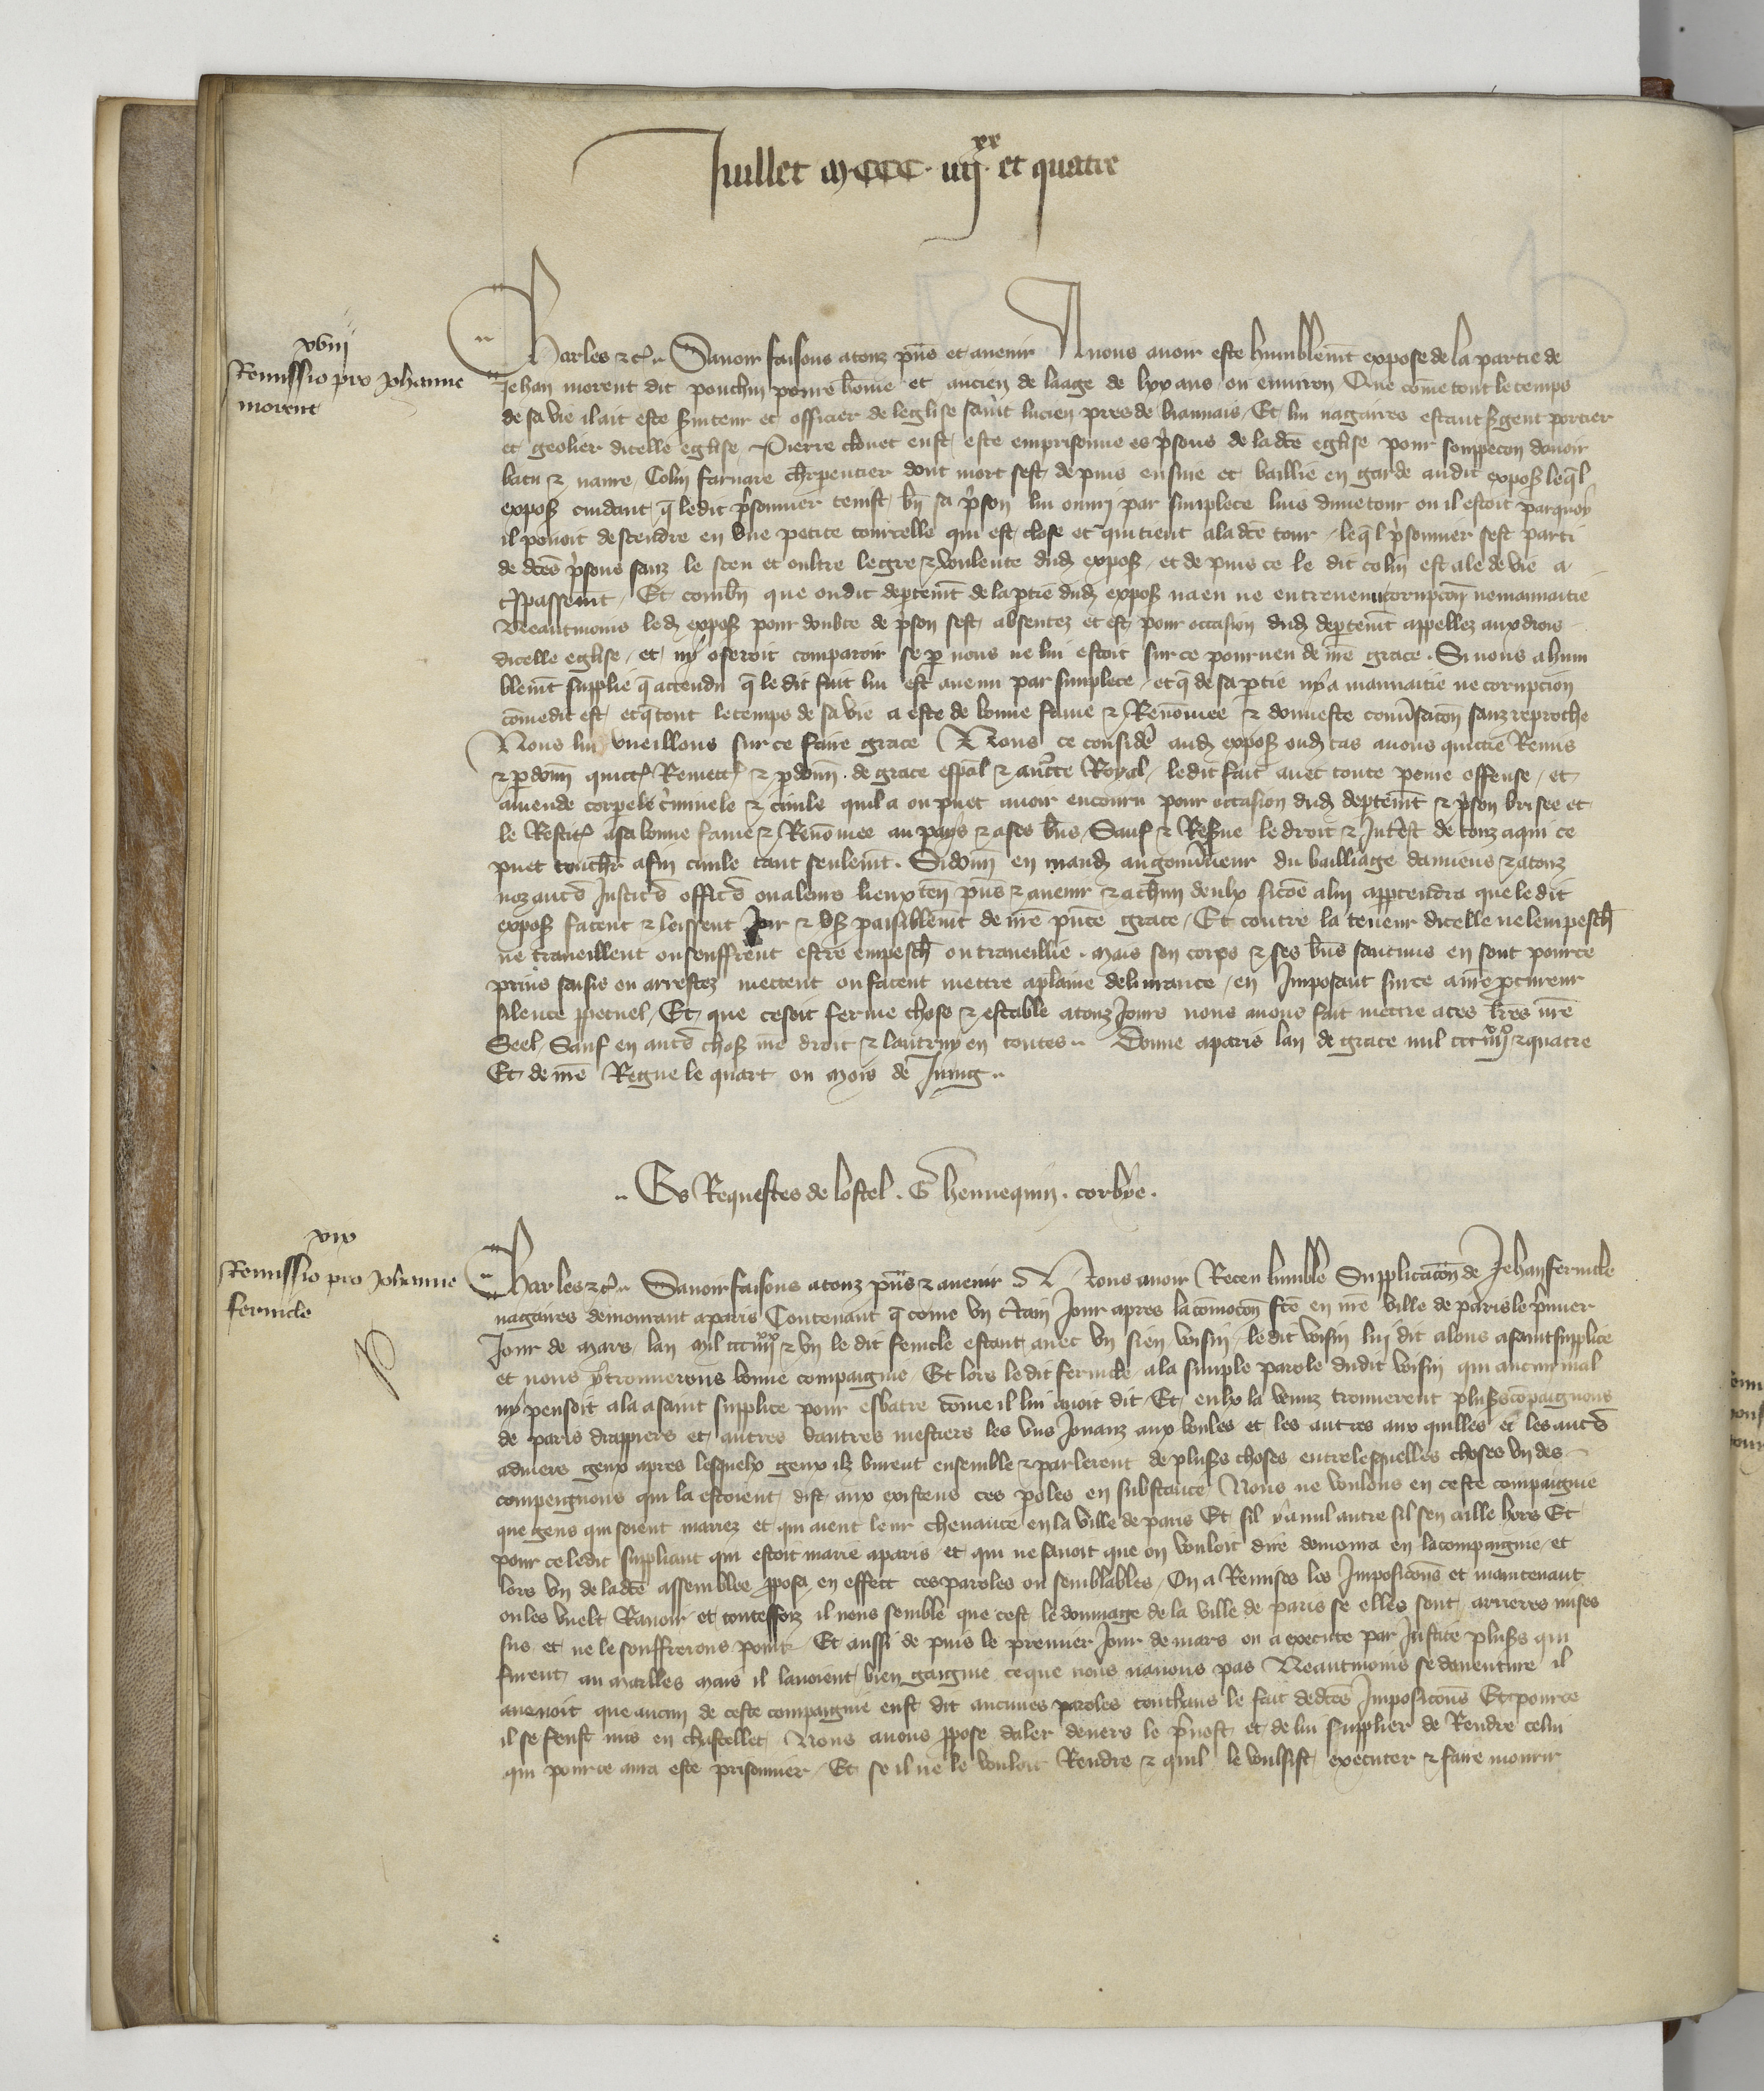 Juillet m.ccc.iiij.xx et quatre
xviij
Remissio pro Johanne
morent
Charles &c̃ Sauoir faisons a touz pñs et auenir A nous auoir este humblemẽt expose de la partie de
Jehan morent dit pouchin poure hõme et ancien de laage de lxx ans ou enuiron Que cõme tout le temps
de sa vie il ait este seruiteur et officier de leglise saint lucien pres de biauuais Et lui nagaires estant sergent portier
et geolier dicelle eglise Pierre clouet eust este emprisonne es prisons de la dcẽ eglise pour souspecon dauoir
batu & naure Colin farnare charpentier dont mort sest depuis ensuie et baillie en garde audit exposant leq̃l
exposant cuidant q̃ ledit prisonnier tenist bñ sa prison lui ouuri par simplece luis dune tour ou il estoit parquoy
il pouoit descendre en vne petite tourelle qui est close et qui tient a la dcẽ tour leq̃l prisonnier sest parti
de dcẽs prisons sanz le sceu et oultre le gre & voulente dud exposant et depuis ce le dit colin est ale de vie a
trespassemẽt Et combñ que oudit departemẽt de la partie dud exposant na eu ne entreuenu corrupcõn ne mauuaitie
Neantmoins led exposant pour doubte de prison sest absentez et est pour occasion dud departemẽt appellez aux drois
dicelle eglise et ny oseroit comparoir se par nous ne lui estoit sur ce pourueu de nr̃e grace. Si nous a hum
blemẽt supplie q̃ actendu q̃ le dit fait lui est auenu par simplece et q̃ de sa partie ny a mauuaitie ne corrupcion
cõme dit est et q̃ tout le temps de sa vie a este de bonne fame & Renõmee & donneste conuersacõn sanz reproche
Nous lui vueillons sur ce faire grace Nous ce consideré aud exposant oud cas auons quictie Remis
& pardonné quictons Remettons & pardonnons de grace espãl & auctorité Royal le dit fait auec toute peine offense et
amende corpele criminele & ciuile quil a ou puet auoir encouru pour occasion dud departemẽt & prison brisee et
le Restituons a sa bonne fame & Renõmee au pays & a ses bñs Sauf & Reserue le droit & Interest de touz a qui ce
puet toucher a fin ciuile tant seulemẽt. Si donnons en mand au gouuerneur du bailliage damiens & a touz
noz autres Justiciers officiers ou a leurs lieux teñ pñs & auenir & a chascun deulx si cõe a lui appartendra que le dit
exposant facent & laissent Joir & vser paisiblemẽt de nr̃e pñte grace Et contre la teneur dicelle ne lempeschent
ne trauaillent ou seuffrent estre empeschie ou trauaillie. mais son corps & ses bñs saucuns en sont pource
prins saisis ou arrestez mettent ou facent mettre a plaine deliurance en Imposant sur ce a nr̃e procureur
silence perpetuel Et que ce soit ferme chose & estable a touz Jours nous auons fait mettre a ces lr̃es nr̃e
Seel Sauf en autres choses nr̃e droit & lautruy en toutes Donne a paris lan de grace mil ccc iiijxx & quatre
Et de nr̃e Regne le quart ou mois de Juing
Es Requestes de lostel. G hennequin. corbye.
xix
Remissio pro Johanne
fernicle
Charles &c̃ Sauoir faisons a touz pñs & auenir Nous auoir Receu humble Supplicacõn de Jehan fernicle
nagaires demourant a paris Contenant q̃ cõme vn certain Jour apres la cõmocõn fcẽ en nr̃e ville de paris le premier
Jour de mars lan mil ccc iiijxx & vn le dit fernicle estant auec vn sien voisin le dit voisin luy dit alons a saint supplice
et nous y trouuerons bonne compaignie Et lors le dit fernicle a la simple parole dudit voisin qui aucun mal
ny pensoit ala a saint supplice pour esbatre cõme il lui auoit dit Et eulx la venuz trouuerent plusrs cõpaignons
de paris drappiers et autres dautres mestiers les vns Jouanz aux boules et les autres aux quilles et les autres
a diuers geux apres lesquelx geux ilz burent ensemble & parlerent de plusrs choses entre lesquelles choses vn des
compaignons qui la estoient dist aux existens ces paroles en substance Nous ne voulons en ceste compaignie
que gens qui soient mariez et qui aient leur cheuance en la ville de paris Et sil y a nul autre sil sen aille hors Et
pour ce ledit suppliant qui estoit marie a paris et qui ne sauoit que on vouloit dire demoura en la compaignie et
lors vn de la dcẽ assemblee proposa en effect ces paroles ou semblables On a Remises les Imposicõns et maintenant
on les vuelt Rauoir et toutesfoiz il nous semble que cest le dommage de la ville de paris se elles sont arrieres mises
sus et ne le souffrerons point Et aussi depuis le premier Jour de mars on a execute par Justice plusrs qui
furent au maillés mais il lauoient bien gaignie ce que nous nauons pas Neantmoins se dauenture il
auenoit que aucun de ceste compaignie eust dit aucunes paroles touchans le fait de dcẽs Imposicõns Et pource
il se feust mis en chastellet Nous auons propose daler deuers le preuost et de lui supplier de Rendre celui
qui pource aura este prisonnier Et se il ne le vouloit Rendre & quil le voulsist executer & faire mourir